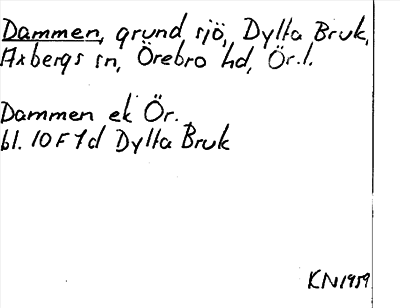 Dammen, grund sjö, Dylta Bruk,
Axbergs sn, Örebro hd, Ör.l.
Dammen ek Ör.
bl. 10F7d Dylta Bruk
KN1959